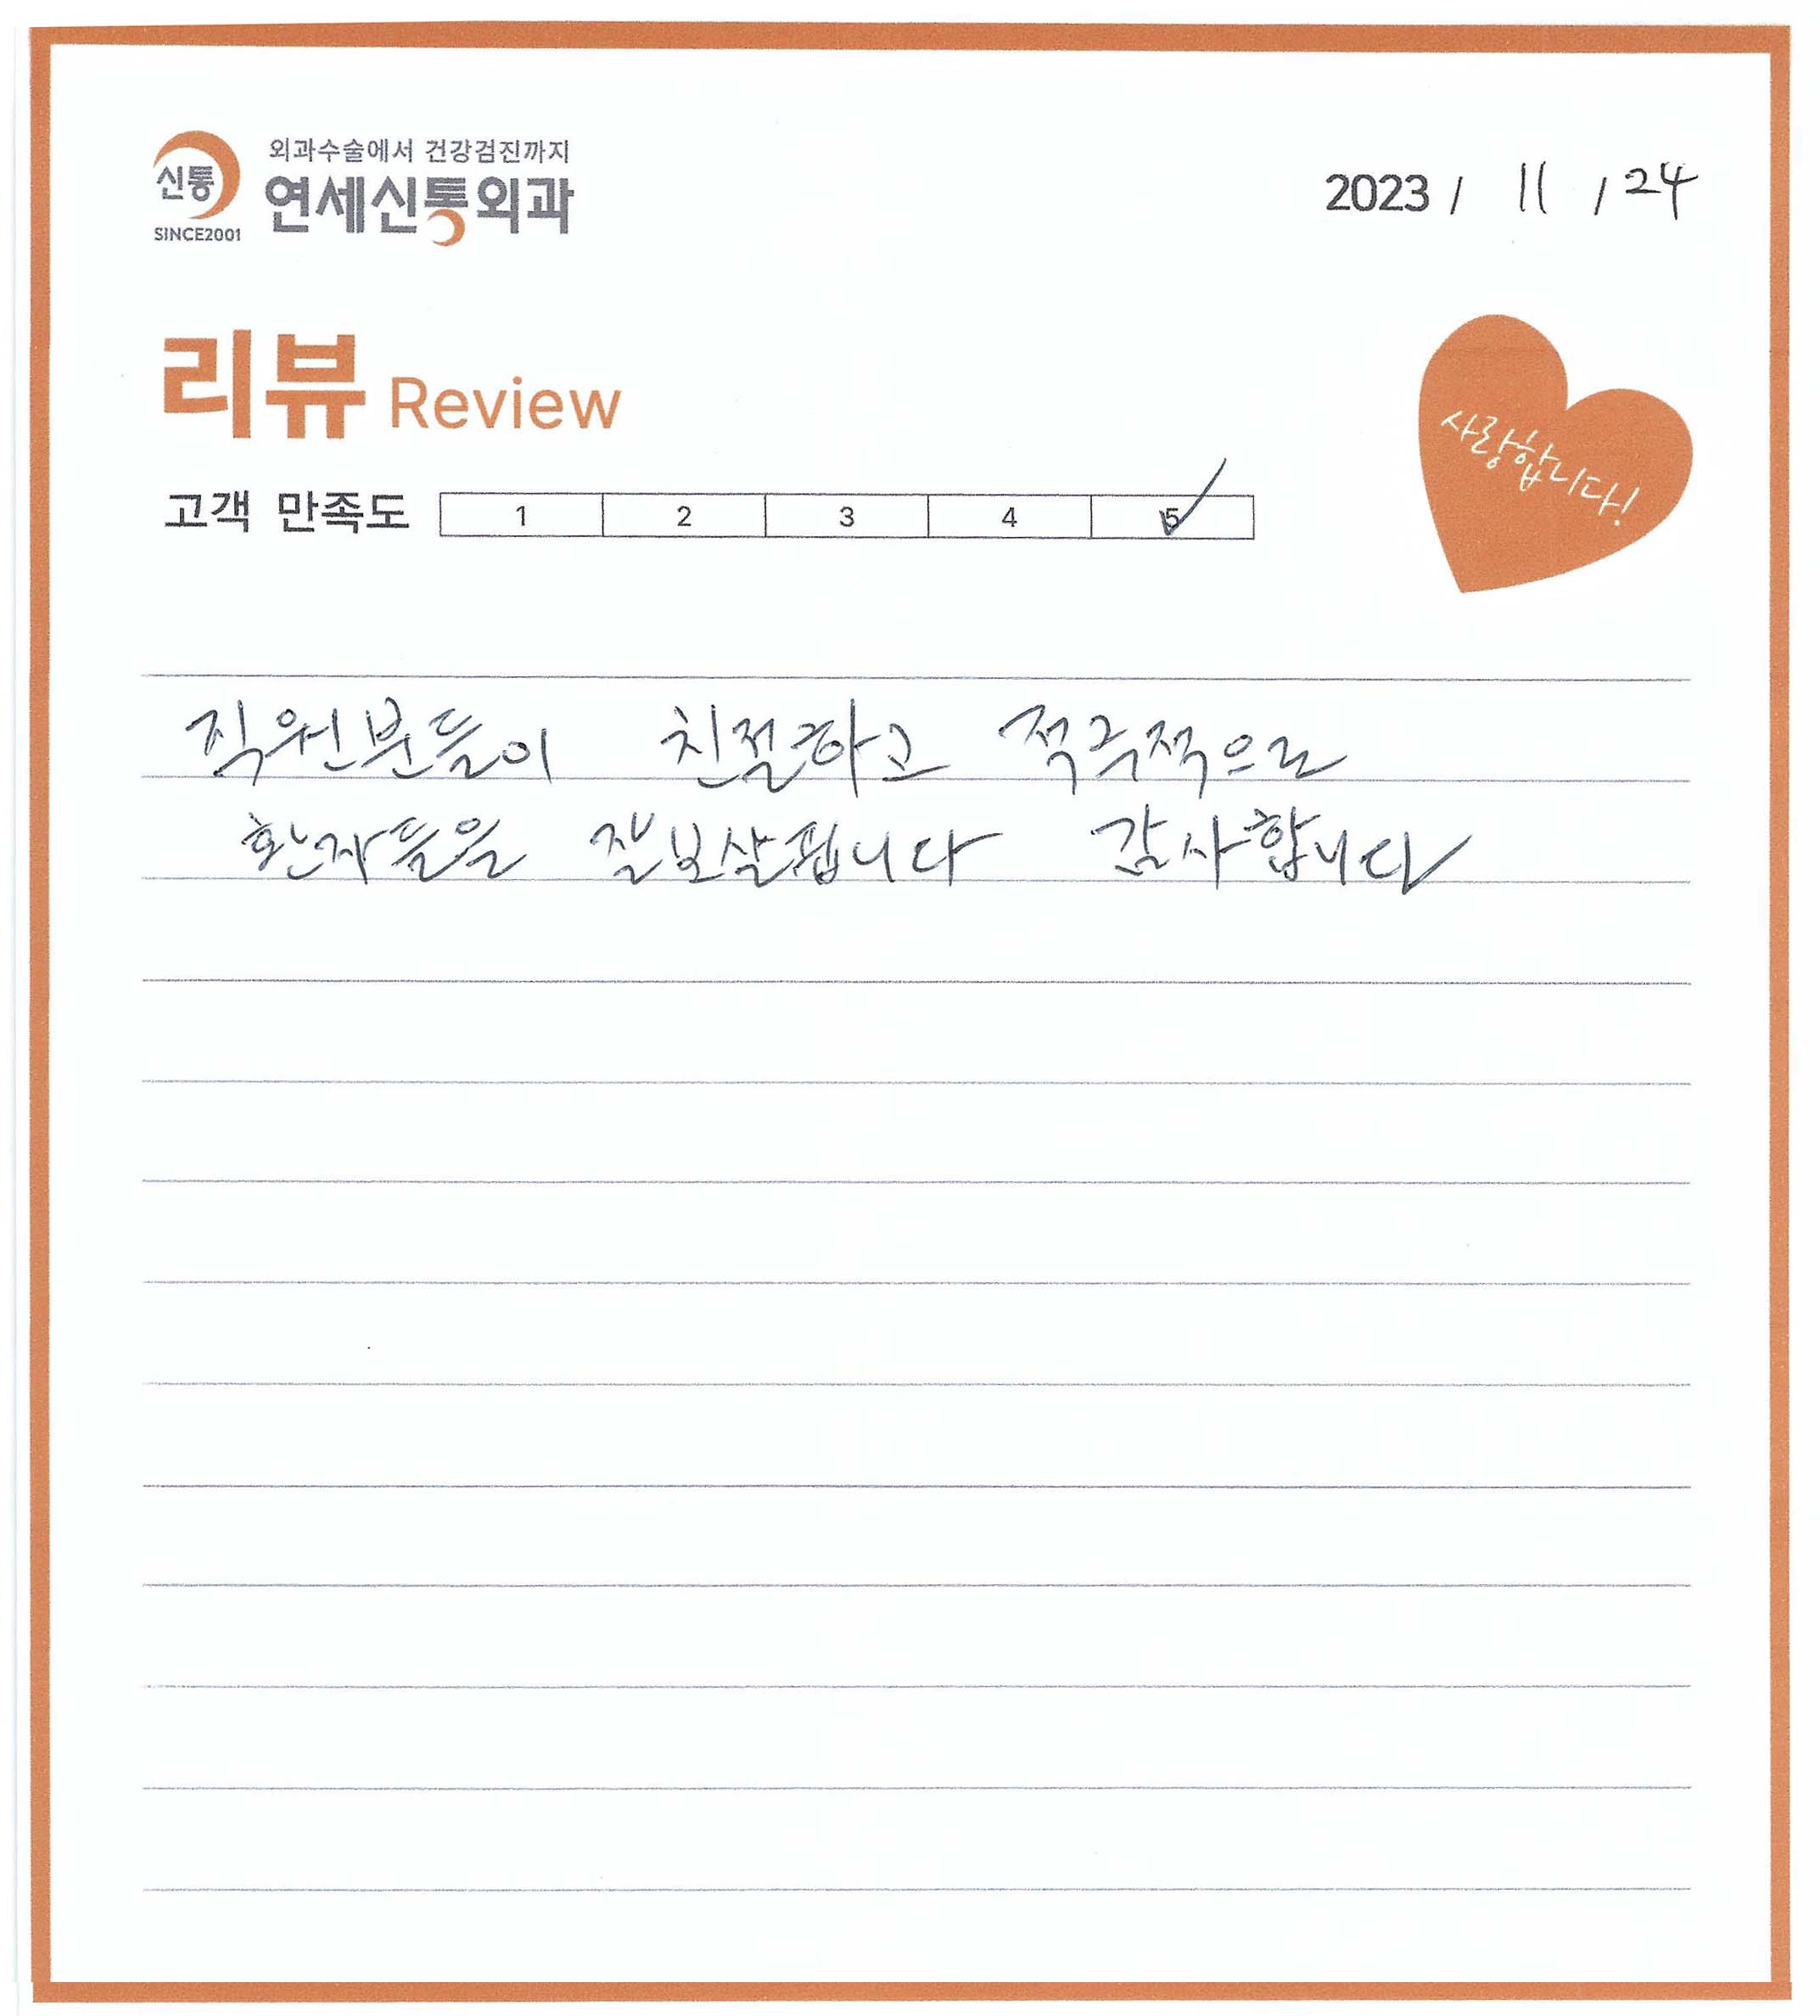 외과수술에서 건강검진까지
신통
연세신통외과
SINCE2001
2023 / 11 / 24
리뷰 Review
사랑합니다!
고객 만족도 1 2 3 4 5
직원분들이 친절하고 적극적으로
환자들을 잘 보살핍니다 감사합니다